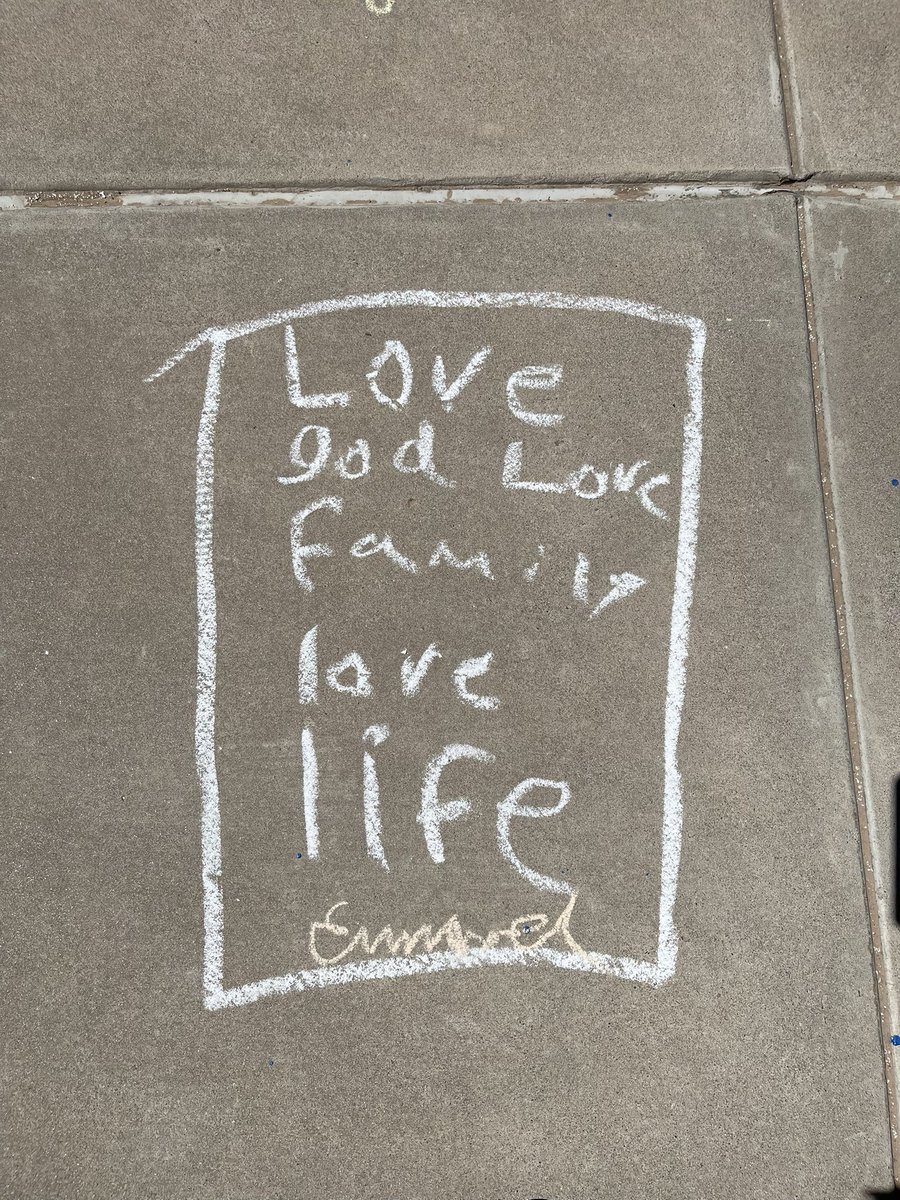 Love
god Love
family
love
life